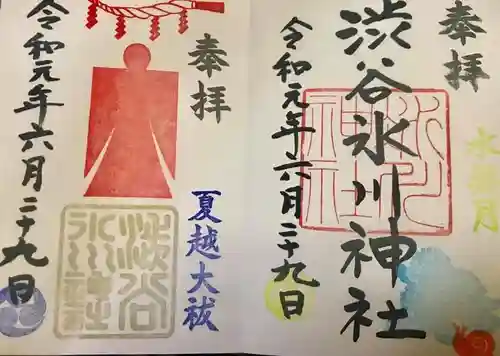 奉拝
水無月
渋谷氷川神社
令和元年六月二十九日
奉拝
夏越大祓
渋谷
氷川神社
令和元年六月二十九日